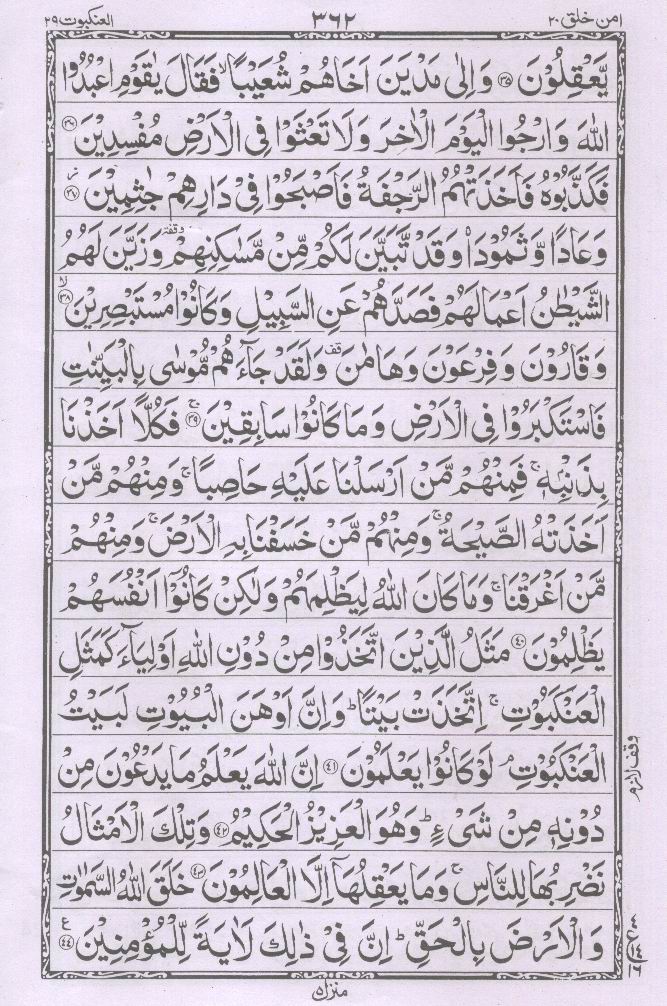 امن خلق ۲۰ ۳۶۲ العنكبوت ۲۹
يَّعْقِلُوْنَ ﴿۳۵﴾ وَاِلٰى مَدْيَنَ اَخَاهُمْ شُعَيْبًا ۙ فَقَالَ يٰقَوْمِ اعْبُدُوا
اللّٰهَ وَارْجُوا الْيَوْمَ الْاٰخِرَ وَلَا تَعْثَوْا فِى الْاَرْضِ مُفْسِدِيْنَ ﴿۳۶﴾
فَكَذَّبُوْهُ فَاَخَذَتْهُمُ الرَّجْفَةُ فَاَصْبَحُوْا فِىْ دَارِهِمْ جٰثِمِيْنَ ﴿۳۷﴾
وَعَادًا وَّثَمُوْدَا۟ وَقَدْ تَّبَيَّنَ لَكُمْ مِّنْ مَّسٰكِنِهِمْ وقفة وَزَيَّنَ لَهُمُ
الشَّيْطٰنُ اَعْمَالَهُمْ فَصَدَّهُمْ عَنِ السَّبِيْلِ وَكَانُوْا مُسْتَبْصِرِيْنَ ﴿۳۸﴾ ۙ
وَقَارُوْنَ وَفِرْعَوْنَ وَهَامٰنَ قف وَلَقَدْ جَآءَهُمْ مُّوْسٰى بِالْبَيِّنٰتِ
فَاسْتَكْبَرُوْا فِى الْاَرْضِ وَمَا كَانُوْا سَابِقِيْنَ ﴿۳۹﴾ ۚ فَكُلًّا اَخَذْنَا
بِذَنْۢبِهٖ ۚ فَمِنْهُمْ مَّنْ اَرْسَلْنَا عَلَيْهِ حَاصِبًا ۚ وَمِنْهُمْ مَّنْ
اَخَذَتْهُ الصَّيْحَةُ ۚ وَمِنْهُمْ مَّنْ خَسَفْنَا بِهِ الْاَرْضَ ۚ وَمِنْهُمْ
مَّنْ اَغْرَقْنَا ۚ وَمَا كَانَ اللّٰهُ لِيَظْلِمَهُمْ وَلٰكِنْ كَانُوْۤا اَنْفُسَهُمْ
يَظْلِمُوْنَ ﴿۴۰﴾ مَثَلُ الَّذِيْنَ اتَّخَذُوْا مِنْ دُوْنِ اللّٰهِ اَوْلِيَآءَ كَمَثَلِ
الْعَنْكَبُوْتِ ۚ اِتَّخَذَتْ بَيْتًا ؕ وَاِنَّ اَوْهَنَ الْبُيُوْتِ لَبَيْتُ
الْعَنْكَبُوْتِ ۘ لَوْ كَانُوْا يَعْلَمُوْنَ ﴿۴۱﴾ اِنَّ اللّٰهَ يَعْلَمُ مَا يَدْعُوْنَ مِنْ
دُوْنِهٖ مِنْ شَىْءٍ ؕ وَهُوَ الْعَزِيْزُ الْحَكِيْمُ ﴿۴۲﴾ وَتِلْكَ الْاَمْثَالُ
نَضْرِبُهَا لِلنَّاسِ ۚ وَمَا يَعْقِلُهَاۤ اِلَّا الْعٰلِمُوْنَ ﴿۴۳﴾ خَلَقَ اللّٰهُ السَّمٰوٰتِ
وَالْاَرْضَ بِالْحَقِّ ؕ اِنَّ فِىْ ذٰلِكَ لَاٰيَةً لِّلْمُؤْمِنِيْنَ ﴿۴۴﴾ ع
وقف لازم
منزل ۵